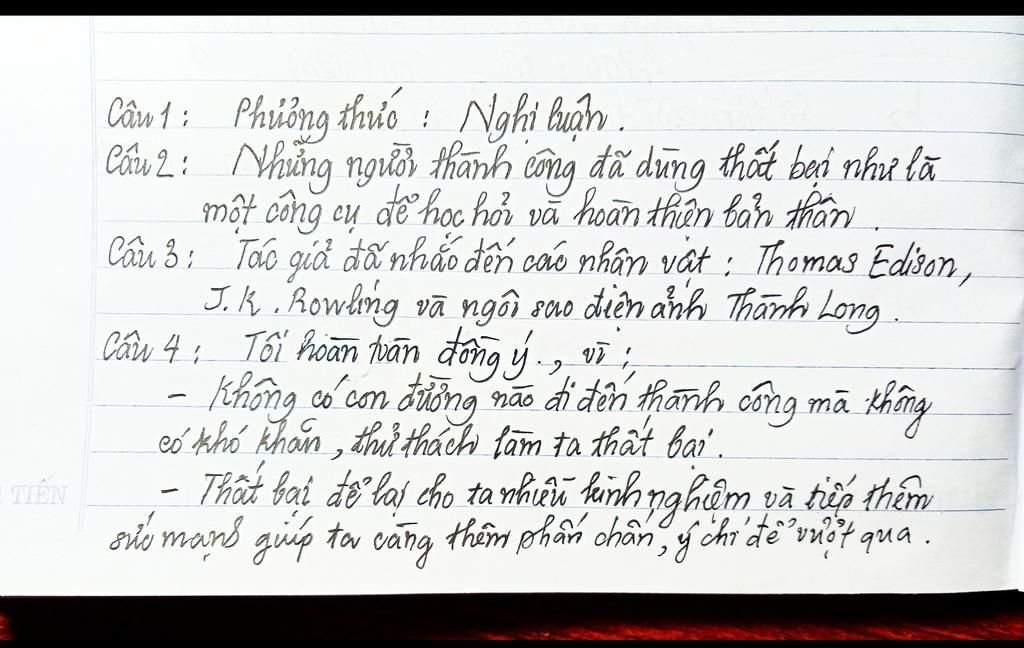 Câu 1 : Phương thức : Nghị luận .
Câu 2 : Những người thành công đã dùng thất bại như là
một công cụ để học hỏi và hoàn thiện bản thân .
Câu 3 : Tác giả đã nhắc đến các nhân vật : Thomas Edison,
J.K . Rowling và ngôi sao điện ảnh Thành Long .
Câu 4 : Tôi hoàn toàn đồng ý ., vì ;
- Không có con đường nào đi đến thành công mà không
có khó khăn , thử thách làm ta thất bại .
- Thất bại để lại cho ta nhiều kinh nghiệm và tiếp thêm
TIẾN
sức mạnh giúp ta càng thêm phấn chấn, ý chí để vượt qua .